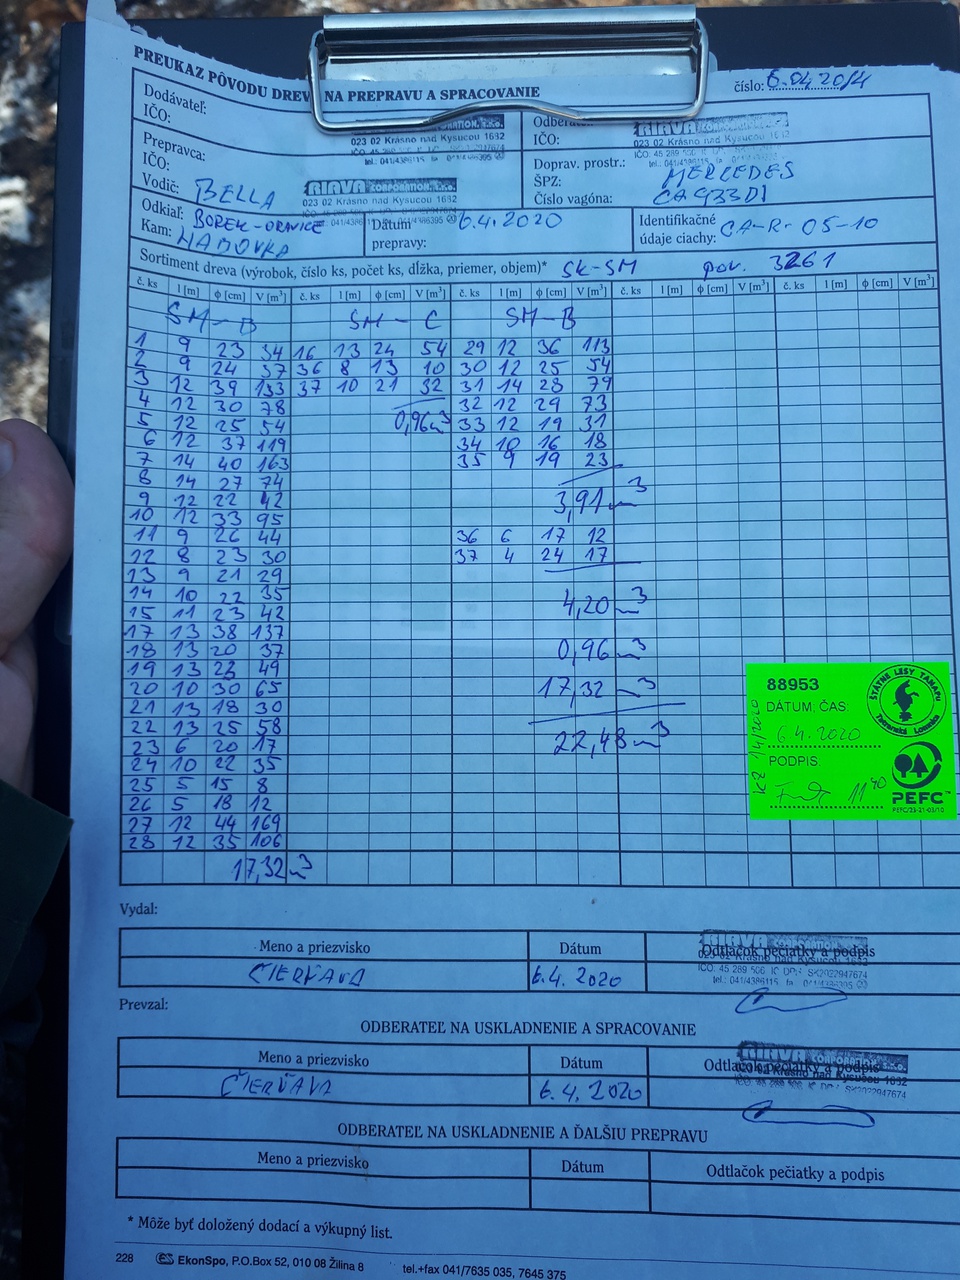 PREUKAZ PÔVODU DREV NA PREPRAVU A SPRACOVANIE
číslo: 6.04.20/4
Dodávateľ:
IČO:
CORPORATION, s.r.o.
023 02 Krásno nad Kysucou 1632
Odberat
IČO:
RIAVA
023 02 Krásno nad Kysucou 1632
Prepravca:
IČO:
Vodič: BELLA
RIAVA CORPORATION s.r.o.
023 02 Krásno nad Kysucou 1632
Doprav. prostr.: MERCEDES
ŠPZ: CA933DI
Číslo vagóna:
Odkiaľ: BOREK-ORAVICE
Kam: HABOVKA
Dátum prepravy: 6.4.2020
Identifikačné údaje ciachy: CA-R-05-10
Sortiment dreva (výrobok, číslo ks, počet ks, dĺžka, priemer, objem)* SK-SM pov. 3261
č. ks l [m] ϕ [cm] V [m³] č. ks l [m] ϕ [cm] V [m³] č. ks l [m] ϕ [cm] V [m³] č. ks l [m] ϕ [cm] V [m³] č. ks l [m] ϕ [cm] V [m³]
SM-B SM-C SM-B
1 9 23 34 16 13 24 54 29 12 36 113
2 9 24 37 36 8 13 10 30 12 25 54
3 12 39 133 37 10 21 32 31 14 28 79
4 12 30 78 32 12 29 73
5 12 25 54 0,96m³ 33 12 19 31
6 12 37 119 34 10 16 18
7 14 40 163 35 9 19 23
8 14 27 74
9 12 22 42 3,91m³
10 12 33 95
11 9 26 44 36 6 17 12
12 8 23 30 37 4 24 17
13 9 21 29
14 10 22 35 4,20m³
15 11 23 42
17 13 38 137
18 13 20 37 0,96m³
19 13 23 49
20 10 30 65 17,32m³
21 13 18 30
22 13 25 58 22,48m³
23 6 20 17
24 10 22 35
25 5 15 8
26 5 18 12
27 12 44 169
28 12 35 106
17,32m³
ŠTÁTNE LESY TANAPU
Tatranská Lomnica
88953
DÁTUM, ČAS:
6.4.2020
PODPIS
11 40
KZ 14/2020
PEFC™
PEFC/23-21-03/10
Vydal:
Meno a priezvisko Dátum Odtlačok pečiatky a podpis
ČIERŇAVA 6.4.2020
RIAVA CORPORATION
023 02 Krásno nad Kysucou 1632
IČO: 45 289 506 IČ DPH: SK2022947674
Prevzal:
ODBERATEĽ NA USKLADNENIE A SPRACOVANIE
Meno a priezvisko Dátum Odtlačok pečiatky a podpis
ČIERŇAVA 6.4.2020
RIAVA CORPORATION
023 02 Krásno nad Kysucou 1632
ODBERATEĽ NA USKLADNENIE A ĎALŠIU PREPRAVU
Meno a priezvisko Dátum Odtlačok pečiatky a podpis
* Môže byť doložený dodací a výkupný list.
228 ES EkonSpo, P.O.Box 52, 010 08 Žilina 8 tel.+fax 041/7635 035, 7645 375